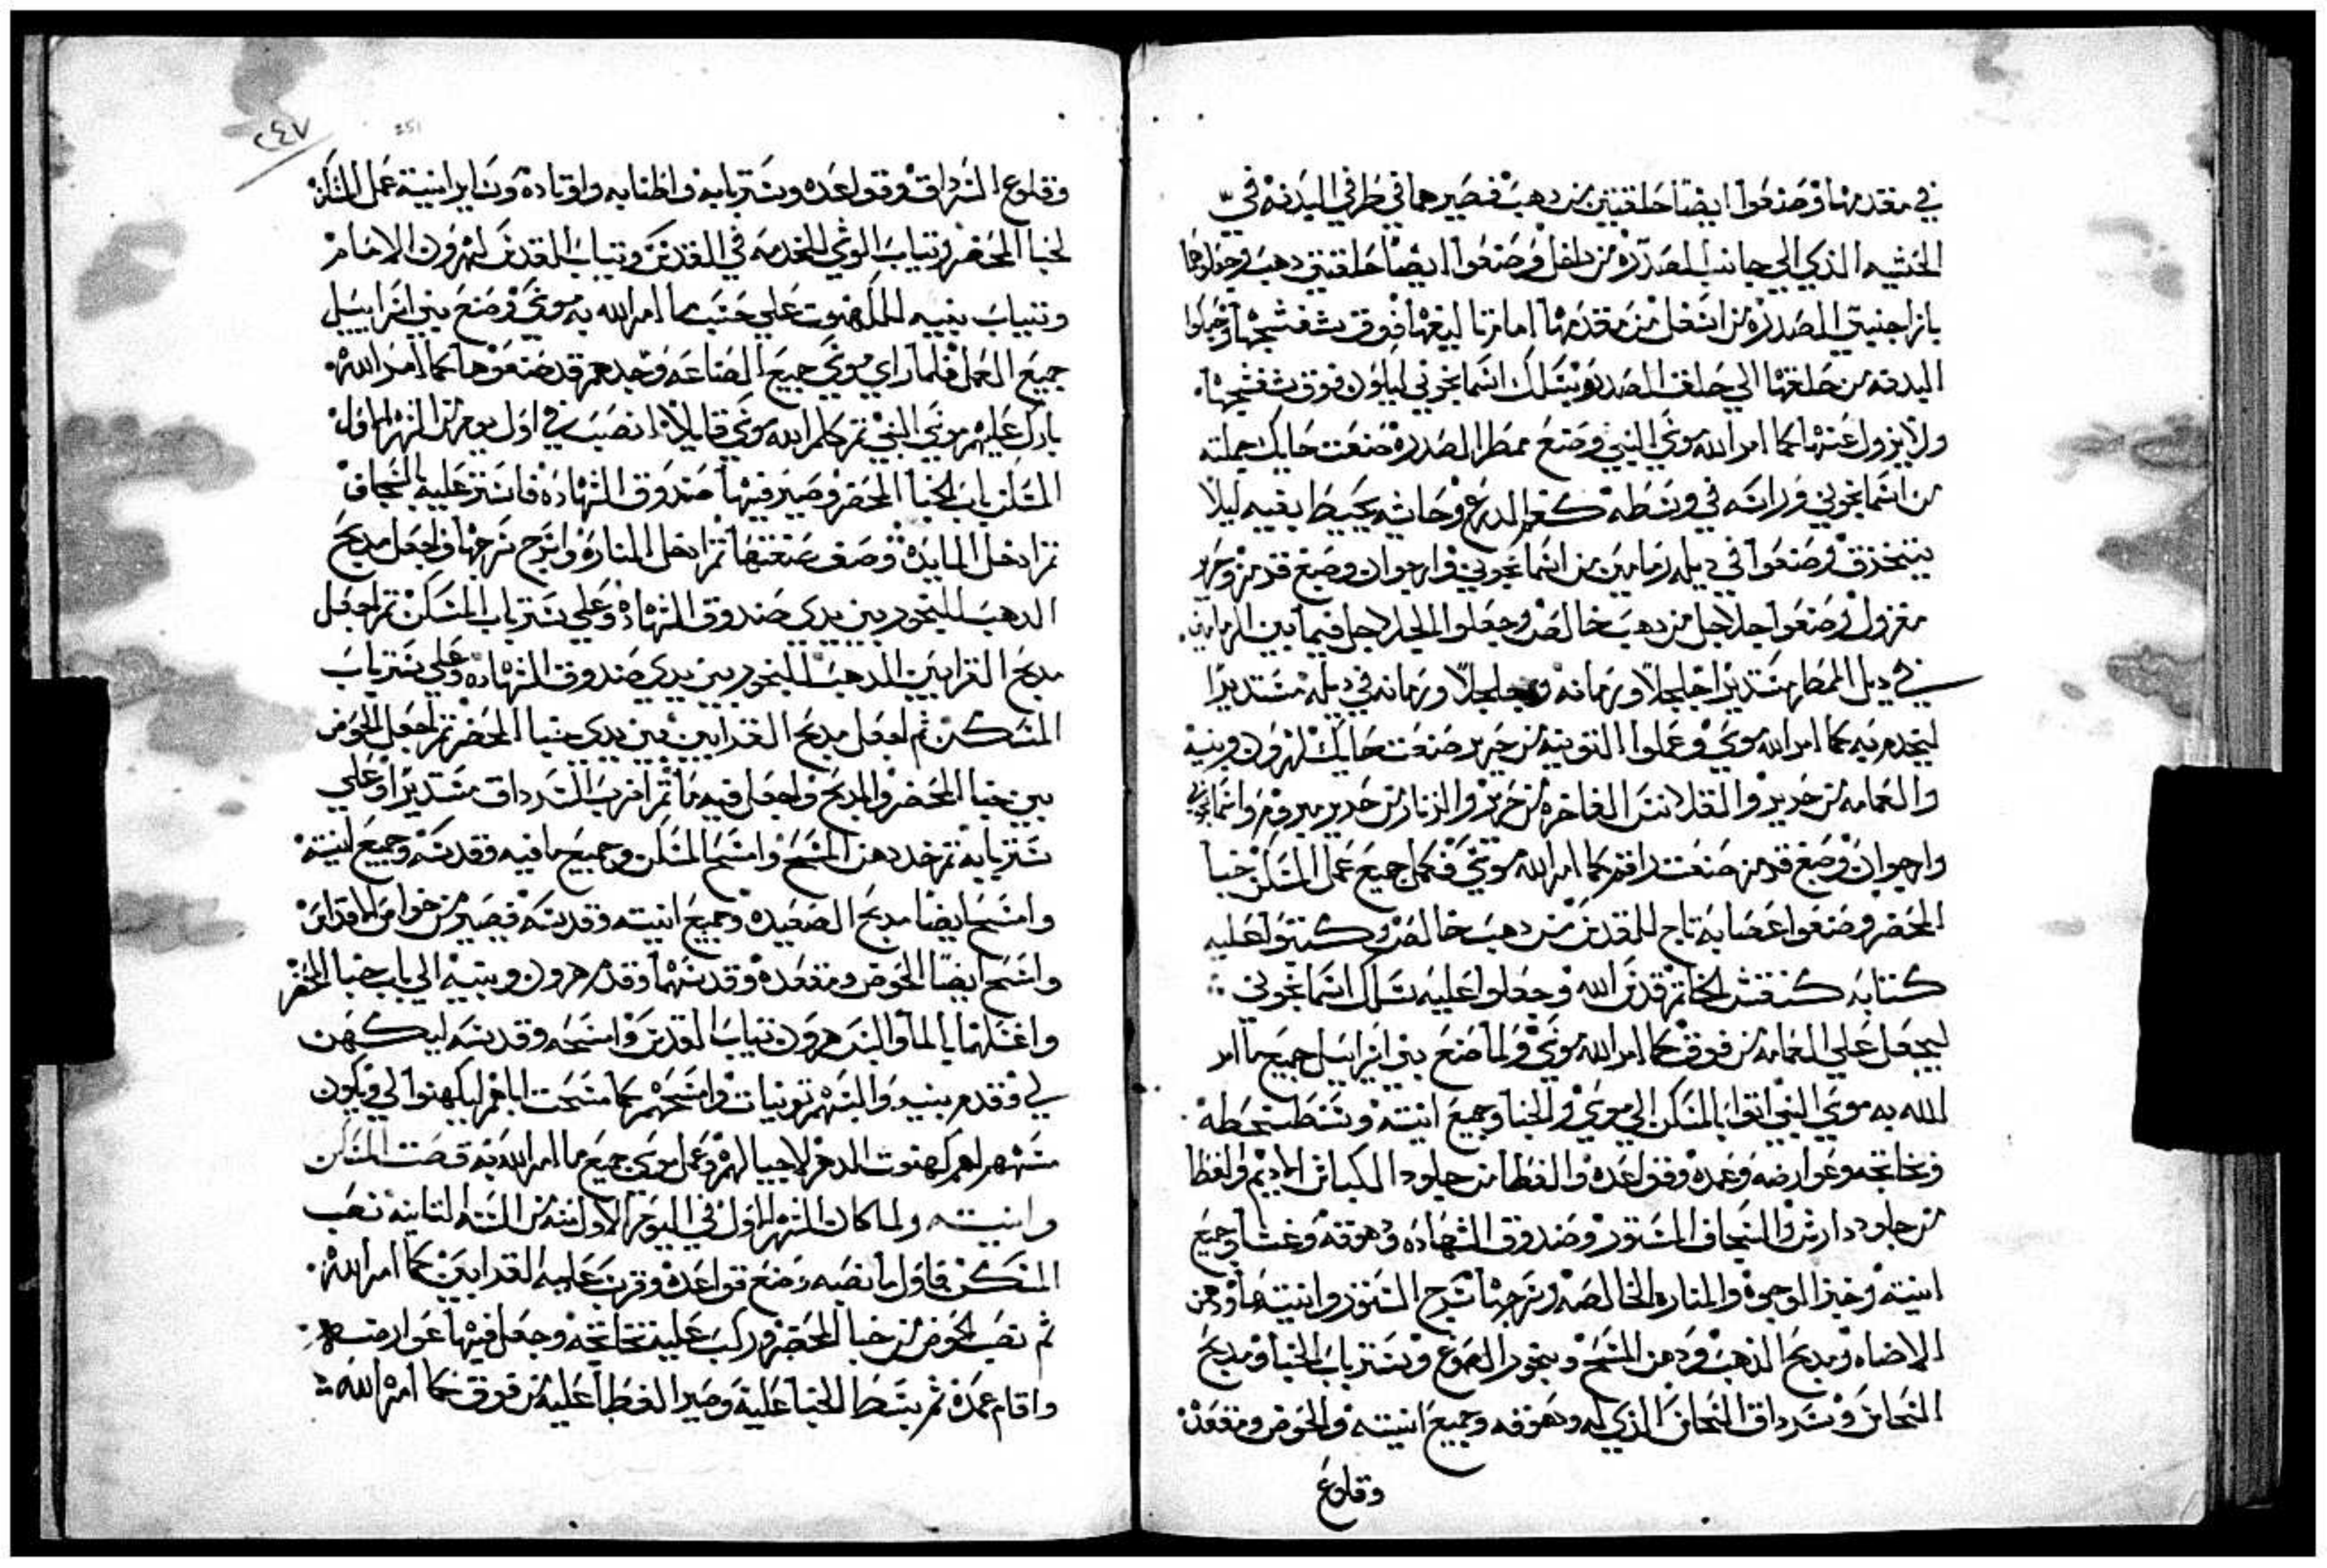 في مقدمها وصنعوا ايضا حلقتين من دهب فصيرهما في طرفي البدنه في
الحشيه الذي الي جانب الصدره من داخل وصنعوا ايضا حلقتين دهب وجعلوهما
الصدره من اسفل من مقدمها فوق شفشجها
البدنه من حلقها الي حلق الصدره بسلك اسمانجوني ليكون فوق شفشجها
ولا يزول عنها كما امر الله موسي النبي وصنع ممطر الصدره صنعت حايك جملته
من اسمانجوني وراسه في وسطه كفم الدرع وحاشيه يحيط بفيه ليلا
يتخذق وصنعوا في ديله رمامين من اسمانجوني وارجوان وصبغ قرمز وحرير
مغزول وصنعوا جلاجل من دهب خالص وجعلوا الجلاجل فيما بين الرمامين
في ديل الممطر مستديرا جلجلا ورمانه وجلجلا ورمانه في ديله مستديرا
ليخدم به كما امر الله موسي وعملوا التونيه من حرير صنعت حايك لهرون وبنيه
والعمامه من حرير والقلانس الفاخره من حرير والزنار من حرير مبروم واسمانجوني
وارجوان وصبغ قرمز صنعت راقم كما امر الله موسي فكمل جميع عمل المسكن خبا
المحضر وصنعوا عصابة تاج للقدس من دهب خالص وكتبوا عليه
كتابه كنقش الخاتم قدس الله وجعلوا عليه سلك اسمانجوني
ليجعل علي العمامه من فوق كما امر الله موسي ولما صنع بني اسراييل جميع ما امر
الله به موسي النبي اتوا بالمسكن الي موسي والخبا وجميع انيته وشظظه
وتخاتجه وعوارضه وعمده وقواعده والغطا من جلود الكباش الاديم والغطا
من جلود دارش والسجاف المستور وصندوق الشهاده ودهوقه وغشاه وجميع
انيته وخبز الوجوه والمناره الخالصه وسرجها سرج المستور وانيتها ودهن
الاضاه ومدبح الدهب ودهن المسح وبخور الصموغ وستر باب الخبا ومدبح
النحاس وسرداق النحاس الذي له ودهوقه وجميع انيته والحوض ومقعده
وقلوع
٢٤٧
251
وقلوع السرداق وقواعده وستر بابه واطنابه واوتاده وساير انية عمل المسكن
لخبا المحضر وتياب الوشي للخدمه في القدس وتياب القدس لهرون الامام
وتياب بنيه للكهنوت علي حسب ما امر الله به موسي وصنع بني اسراييل
جميع العمل فلما راي موسي جميع الصناعه وجدهم قد صنعوها كما امر الله
بارك عليهم موسي النبي ثم كلم الله موسي قايلا انصب في اول يوم من الشهر الاول
المسكن باب الخبا المحضر وصير فيها صندوق الشهاده فاستر عليه بالسجاف
ثم ادخل المايده وصف صنعتها ثم ادخل المناره واسرج سرجها واجعل مدبح
الدهب للبخور بين يدي صندوق الشهاده وعلي ستر باب المسكن ثم اجعل
مدبح القرابين الدهب للبخور بين يدي صندوق الشهاده وعلي ستر باب
المسكن ثم اجعل مدبح القرابين بين يدي خبا المحضر ثم اجعل الحوض
بين خبا المحضر والمدبح واجعل فيه ما ثم اضرب السرداق مستديرا وعلي
ستر بابه ثم خد دهن المسح وامسح المسكن وجميع ما فيه وقدسه وجميع انيته
وامسح ايضا مدبح الصعيده وجميع انيته وقدسه فيصير من خواص الاقداس
وامسح ايضا الحوض ومقعده وقدسهما وقدم هرون وبنيه الي باب خبا المحضر
واغسلهما بالما والبس هرون تياب القدس وامسحه وقدسه ليكهن
لي وقدم بنيه والبسهم تونيات وامسحهم كما مسحت اباهم ليكهنوا لي ويكون
مسهم لهم كهنوت الدهر لاجيالهم وعمل موسي جميع ما امر الله به قصت المسكن
وانيته ولما كان الشهر الاول في اليوم الاول منه من السنه التانيه نصب
المسكن فاول ما نصبه وضع قواعده وقرب عليه القرابين كما امر الله
ثم نصب الحوض من خبا المحضر وركب عليه تخاتجه وجعل فيها عوارضه
واقام عمده ثم بسط الخبا عليه وصير الغطا عليه من فوق كما امره الله